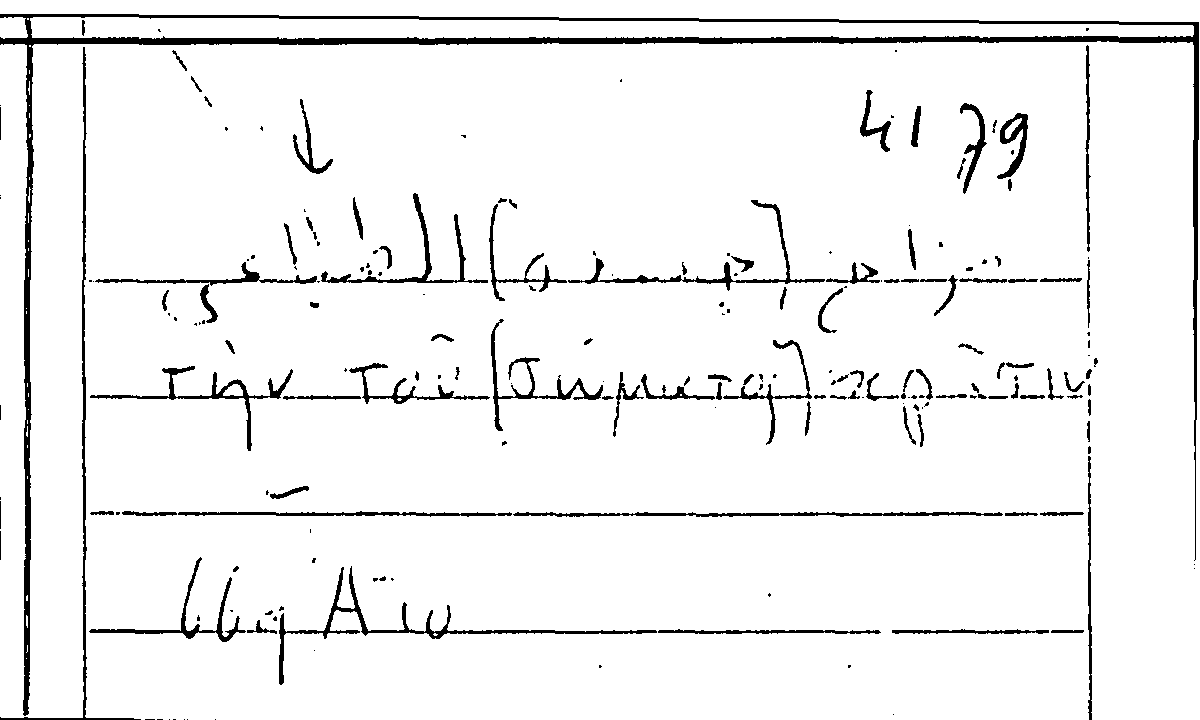 4179
مزاج [جسده] الطباعى
τὴν τοῦ [σώματος] κρᾶσιν
66q A 10